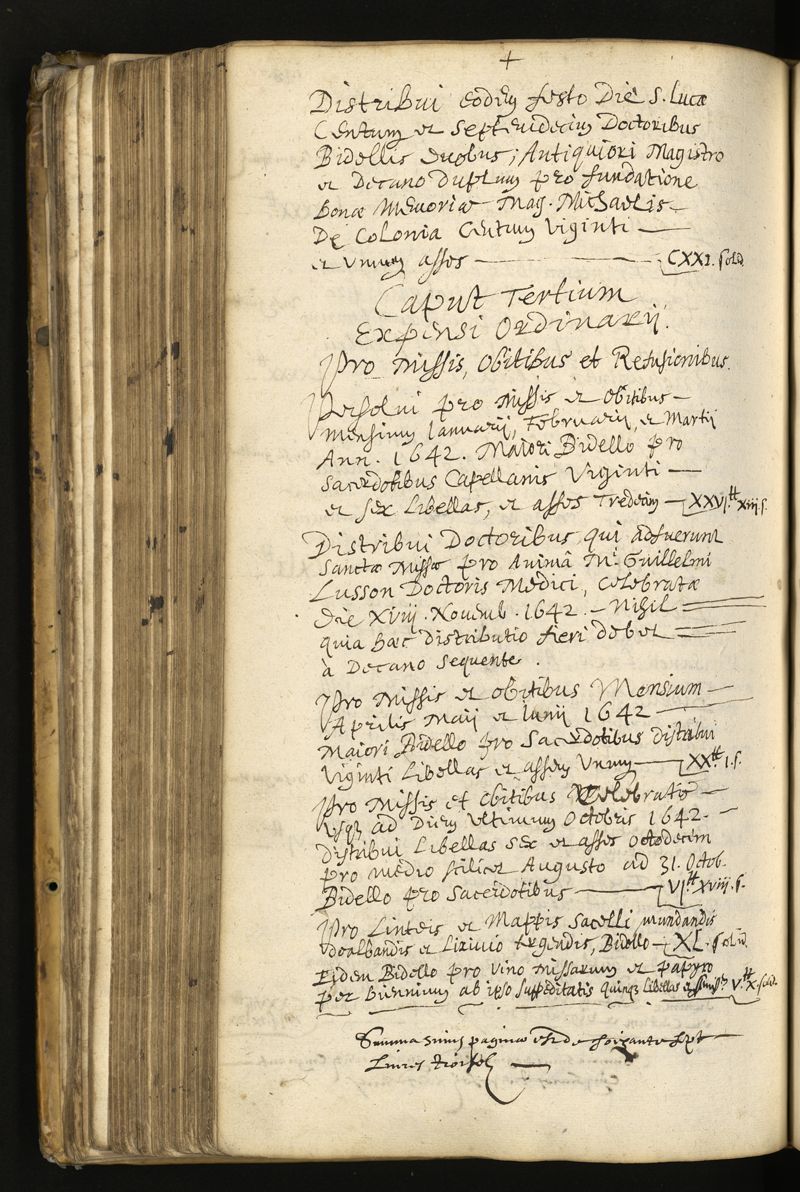 +
Distribui eodem festo Die S. Lucæ
Centum et Septemdecim Doctoribus
Bidellis duobus; Antiquiori Magistro
et Decano duplum pro fundatione
bonæ Memoriæ Mag. Michaelis
De Colonia Centum viginti —
et Unum asses — CXXI. solid
Caput Tertium
Expensi Ordinarij.
Pro Missis, Obitibus et Refusionibus.
Persolui pro Missis et Obitibus
mensium Ianuarij, Februarij, et Martij
Ann. 1642. Maiori Bidello pro
Sacerdotibus Capellanis Viginti —
et sex Libellas, et asses Tredecim — XXVI.tt xiij.s.
Distribui Doctoribus, qui adfuerunt
Sanctæ Missæ pro Animâ Mri Guillelmi
Lusson Doctoris Medici, celebratæ
die XViij. Novemb. 1642. — Nihil
quia hæc distributio fieri debet
à Decano sequente.
Pro Missis et obitibus Mensium —
Aprilis Maij et Iunij 1642 —
Maiori Bidello pro Sacerdotibus distribui
Viginti Libellas et assem Unum — XXtt 1.s.
Pro Missis et Obitibus Celebratis —
usq; ad Diem ultimum Octobris 1642. —
distribui Libellas sex et asses octodecim
pro medio scilicet Augusto ad 31. Octob.
Bidello pro Sacerdotibus — VI.tt XViii.s.
Pro Linteis et Mappis Sacelli mundandis
dealbandis et Lixivio tergendis, Bidello — XL. solid.
Eidem Bidello pro vino missarum et papyro
per biennium ab ipso suppeditatis quinq; libellas et V.tt X. solid.
Summa huius paginæ est de soixante sept
Livres